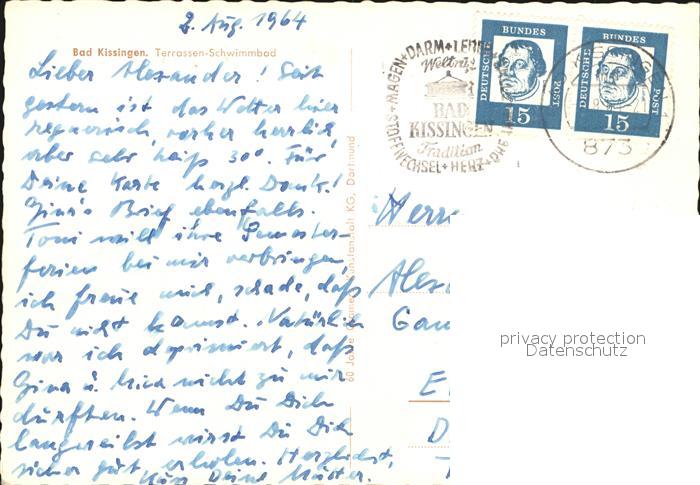 2. Aug. 1964
Bad Kissingen. Terrassen-Schwimmbad
Lieber Alexander! Seit
gestern ist das Wetter hier
regnerisch, vorher herrlich
aber sehr heiß 30°. Für
Deine Karte herzl. Dank!
Gina's Brief ebenfalls.
Toni will ihre Semester-
ferien bei mir verbringen,
ich freue mich, schade, daß
Du nicht kannst. Natürlich
war ich deprimiert, daß
Gina u. nicht zu mir
dürften. Wenn Du Dich
langweilst wirst Du Dich
sicher gut erholen. Herzlichst,
Kuss Deine Mutter.
60 Jahre Kunstanstalt KG, Dortmund
MAGEN+DARM+LEBER
STOFFWECHSEL+HERZ+
BAD
KISSINGEN
Tradition
DEUTSCHE BUNDESPOST
15
DEUTSCHE BUNDESPOST
15
873
Herrn
Alex
Gan
E
D
privacy protection
Datenschutz